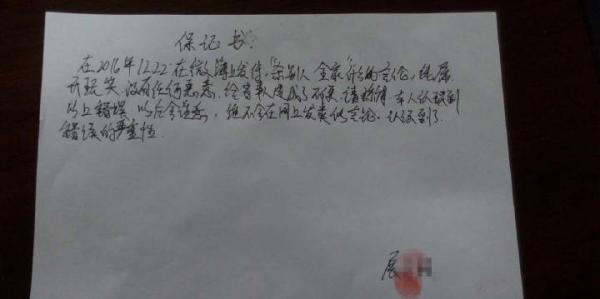 保记书.
在2016年12.22在微簿上发佈,杀别人全家什么的言伦,纯属
开玩笑,没有任何恶意,给当事人造成了不便,请谅解.本人认识到
以上错误,以后会注意,绝不会在网上发类似言论.认识到了
错误的严重性.
展